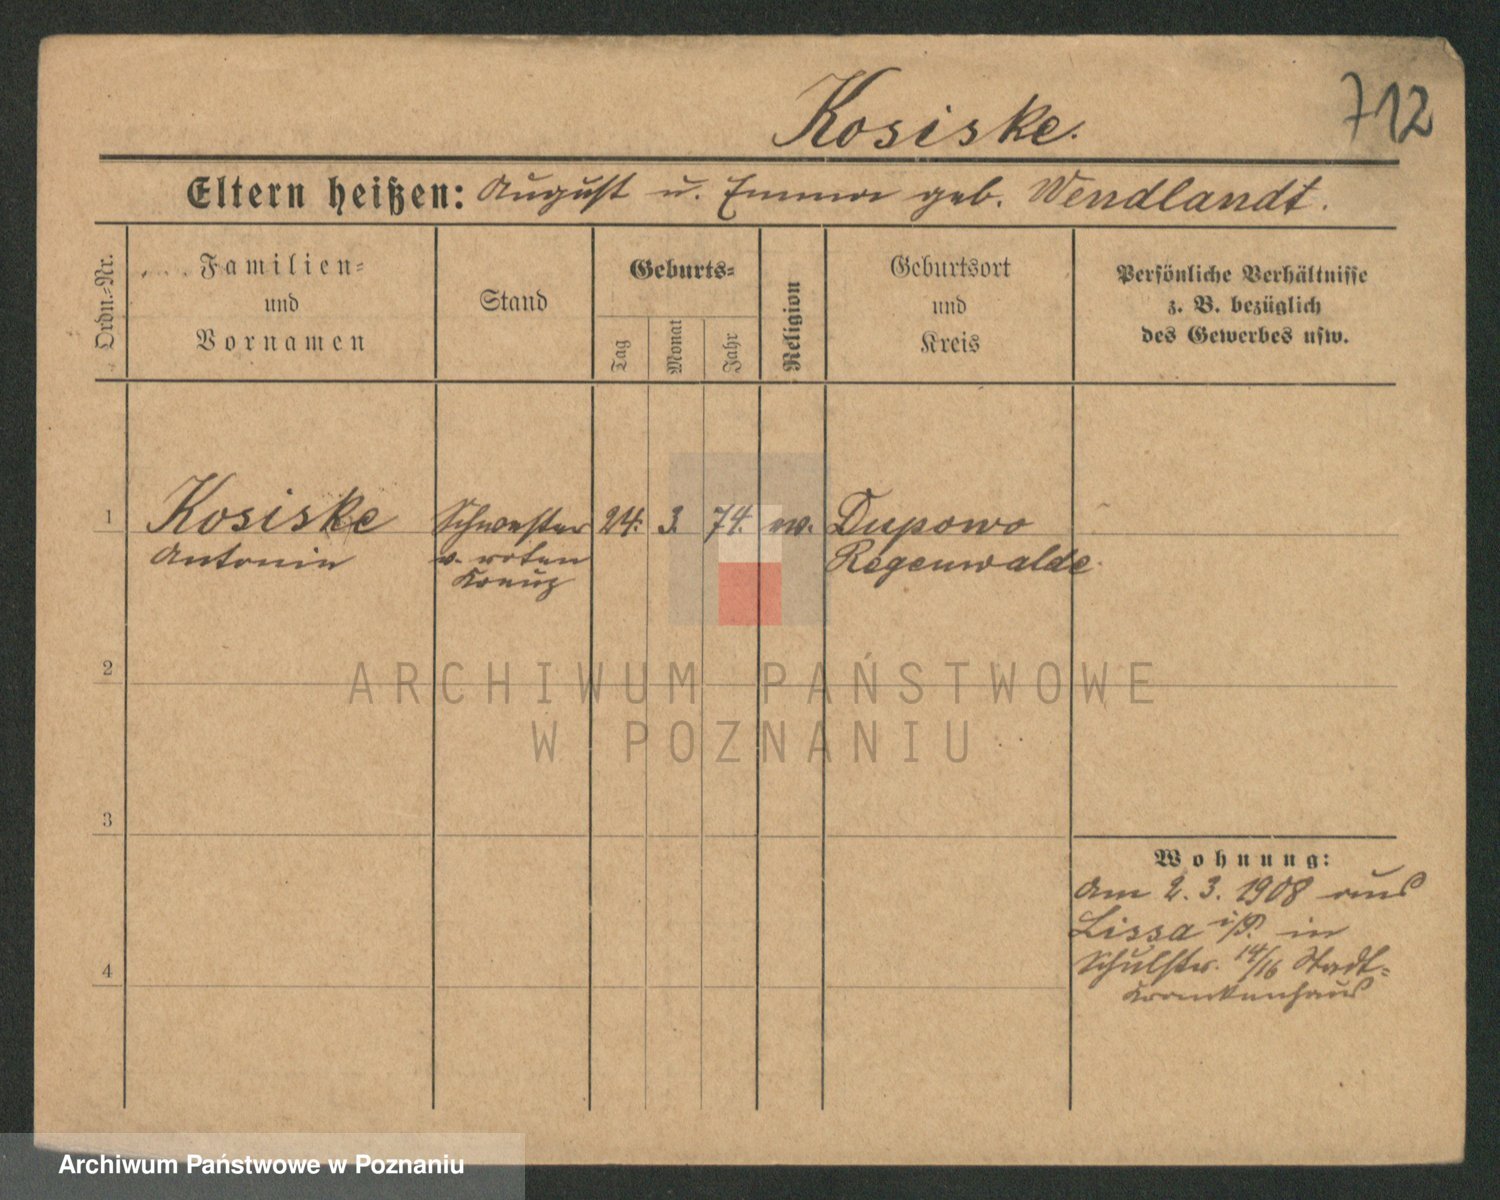 Kosiske.
712
Eltern heißen: August u. Emma geb. Wendlandt.
Ordn.-Nr.
Familien-
und
Vornamen
Stand
Geburts-
Tag
Monat
Jahr
Religion
Geburtsort
und
Kreis
Persönliche Verhältnisse
z. B. bezüglich
des Gewerbes usw.
1
Kosiske
Antonie
Schwester
v. roten
Kreuz
24. 3. 74. ev.
Dupowo
Regenwalde.
ARCHIWUM PAŃSTWOWE
W POZNANIU
2
3
4
Wohnung:
Am 2. 3. 1908 aus
Lissa i/P. in
Schulstr. 14/16 Stadt-
krankenhaus
Archiwum Państwowe w Poznaniu